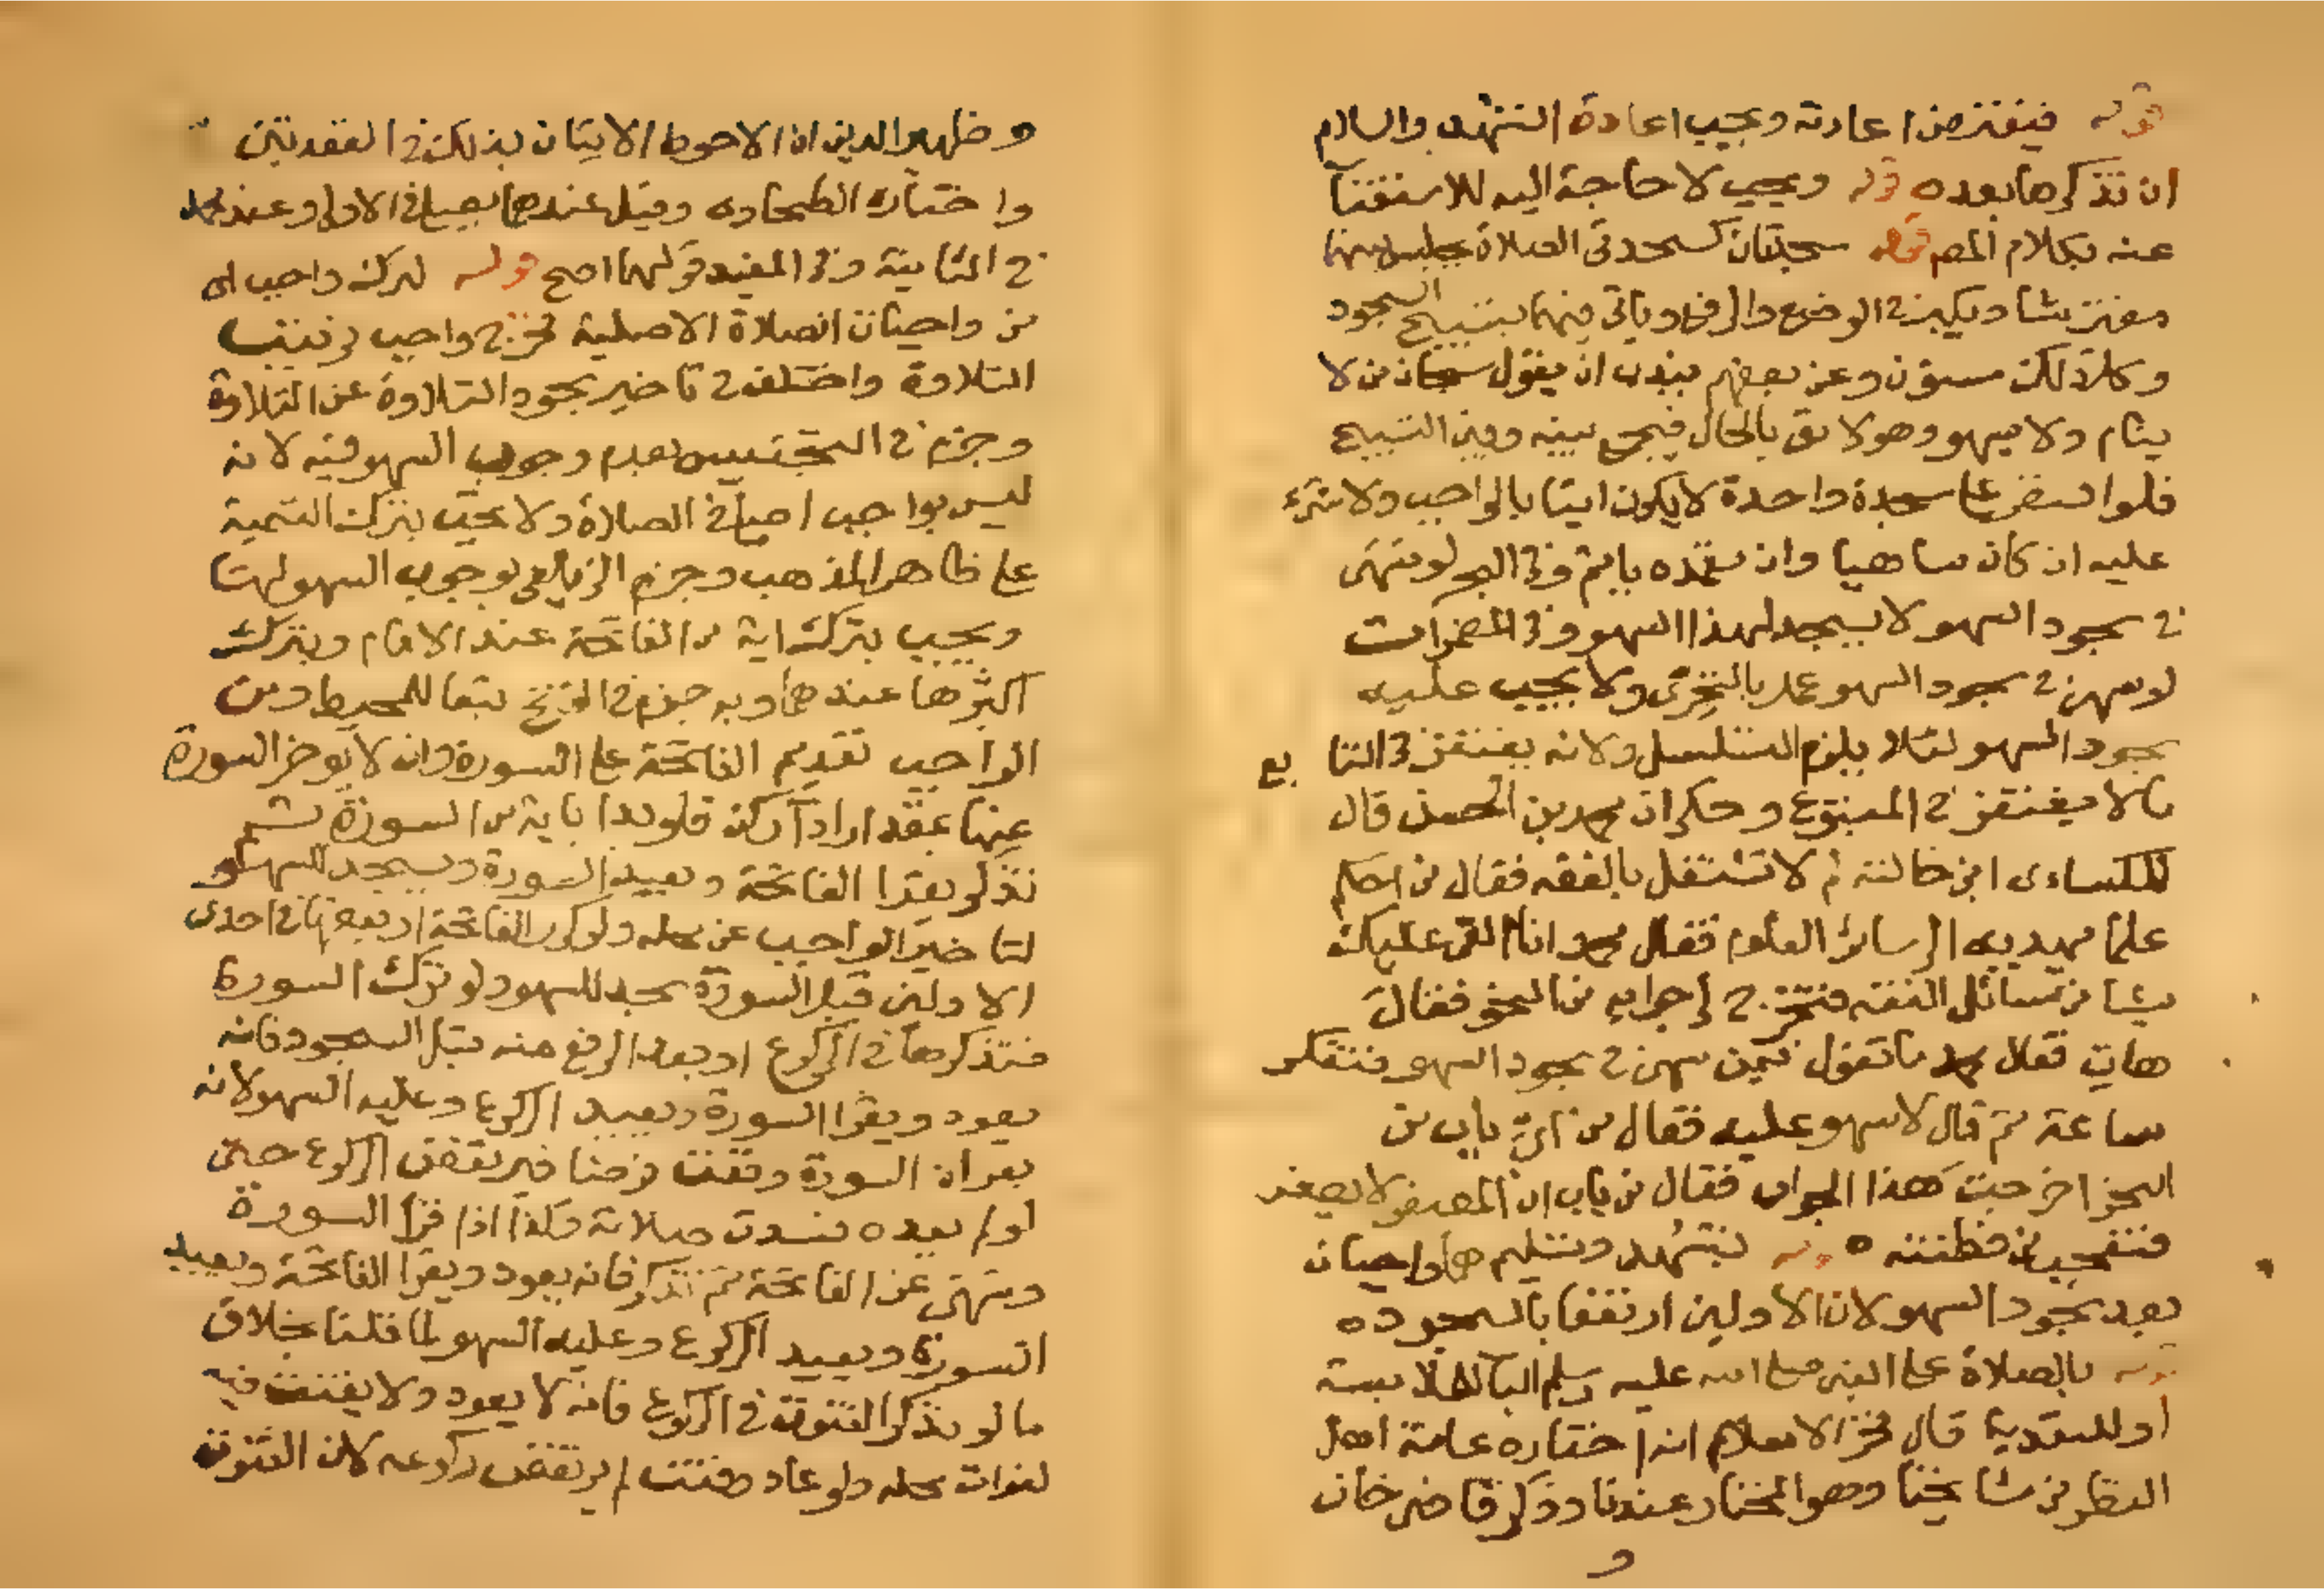 قوله فيفترض اعادته ويجب اعادة التشهد والسلام
ان تذكرها بعده قوله ويجب لا حاجة اليه للاستغنآ
عنه بكلام المص قوله سجدتان كسجدتى الصلاة يجلس بينهما
مفترشا ويكبر في الوضع والرفع وياتى فيهما بتسبيح السجود
وكل ذلك مسنون وعن بعضهم يندب ان يقول سبحان من لا
ينام ولا يسهو وهو لايق بالحال فيجمع بينه وبين التسبيح
فلو اقتصر على سجدة واحدة لا يكون اتيا بالواجب ولا شىء
عليه ان كان ساهيا وان تعمده ياثم وفى البحر لو سهى
في سجود السهو لا يسجد لهذا السهو وفى المضمرات
لو سهى في سجود السهو عمل بالتحرى ولا يجب عليه
سجود السهو لئلا يلزم التسلسل ولانه يغتفر فى التابع
ما لا يغتفر في المتبوع وحكى ان محمد بن الحسن قال
للكساءى ابن خالته لم لا تشتغل بالفقه فقال من احكم
علما يهديه الى سائر العلوم فقال محمد انا القى عليك
شيا من مسائل الفقه فتخرج لى جوابه من النحو فقال
هات فقال محمد ما تقول فيمن سهى في سجود السهو فتفكر
ساعة ثم قال لا سهو عليه فقال من اىّ باب من
النحو اخرجت هذا الجواب فقال من باب ان المصغر لا يصغر
فتعجب من فطنته قوله بتشهد وتسليم هما واجبان
بعد سجود السهو لان الاولين ارتفعا بالسجود
قوله بالصلاة على النبى صلى الله عليه وسلم البآ للملابسة
او للتعدية قال فخر الاسلام انه اختاره عامة اهل
النظر من مشايخنا وهو المختار عندنا وذكر قاضى خان
و
وظهير الدين ان الاحوط الاتيان بذلك في القعدتين
واختاره الطحاوى وقيل عندهما يصلى فى الاولى وعند محمد
في الثانية وفى المفيد قولهما اصح قوله لترك واجب اى
من واجبات الصلاة الاصلية فخرج واجب ترتيب
التلاوة واختلف في تاخير سجود التلاوة عن التلاوة
وجزم في التجنيس بعدم وجوب السهو فيه لانه
ليس بواجب اصلى فى الصلاة ولا يجب بترك التسمية
على ظاهر المذهب وجزم الزيلعى بوجوب السهو لها
ويجب بترك اية من الفاتحة عند الامام وبترك
اكثرها عندهما وبه جزم في تبعا للمحيط ومن
الواجب تقديم الفاتحة على السورة وان لا يوخر السورة
عنها بمقدار ادآ ركن فلو بدا باية من السورة ثم
تذكر يقرا الفاتحة ويعيد السورة ويسجد للسهو
لتاخير الواجب عن محله ولو كرر الفاتحة او بعضها في احدى
الاولين قبل السورة سجد للسهو ولو ترك السورة
فتذكرها في الركوع او بعد الرفع منه قبل السجود فانه
يعود ويقرا السورة ويعيد الركوع وعليه السهو لانه
بقراة السورة وقعت فرضا فيرتفض الركوع حتى
لو لم يعده فسدت صلاته وكذا اذا قرا السورة
وسهى عن الفاتحة ثم تذكر فانه يعود ويقرا الفاتحة ويعيد
السورة ويعيد الركوع وعليه السهو لما قلنا بخلاف
ما لو تذكر القنوت في الركوع فانه لا يعود ولا يقنت فيه
لفوات محله ولو عاد وقنت لم يرتفض ركوعه لان القنوت